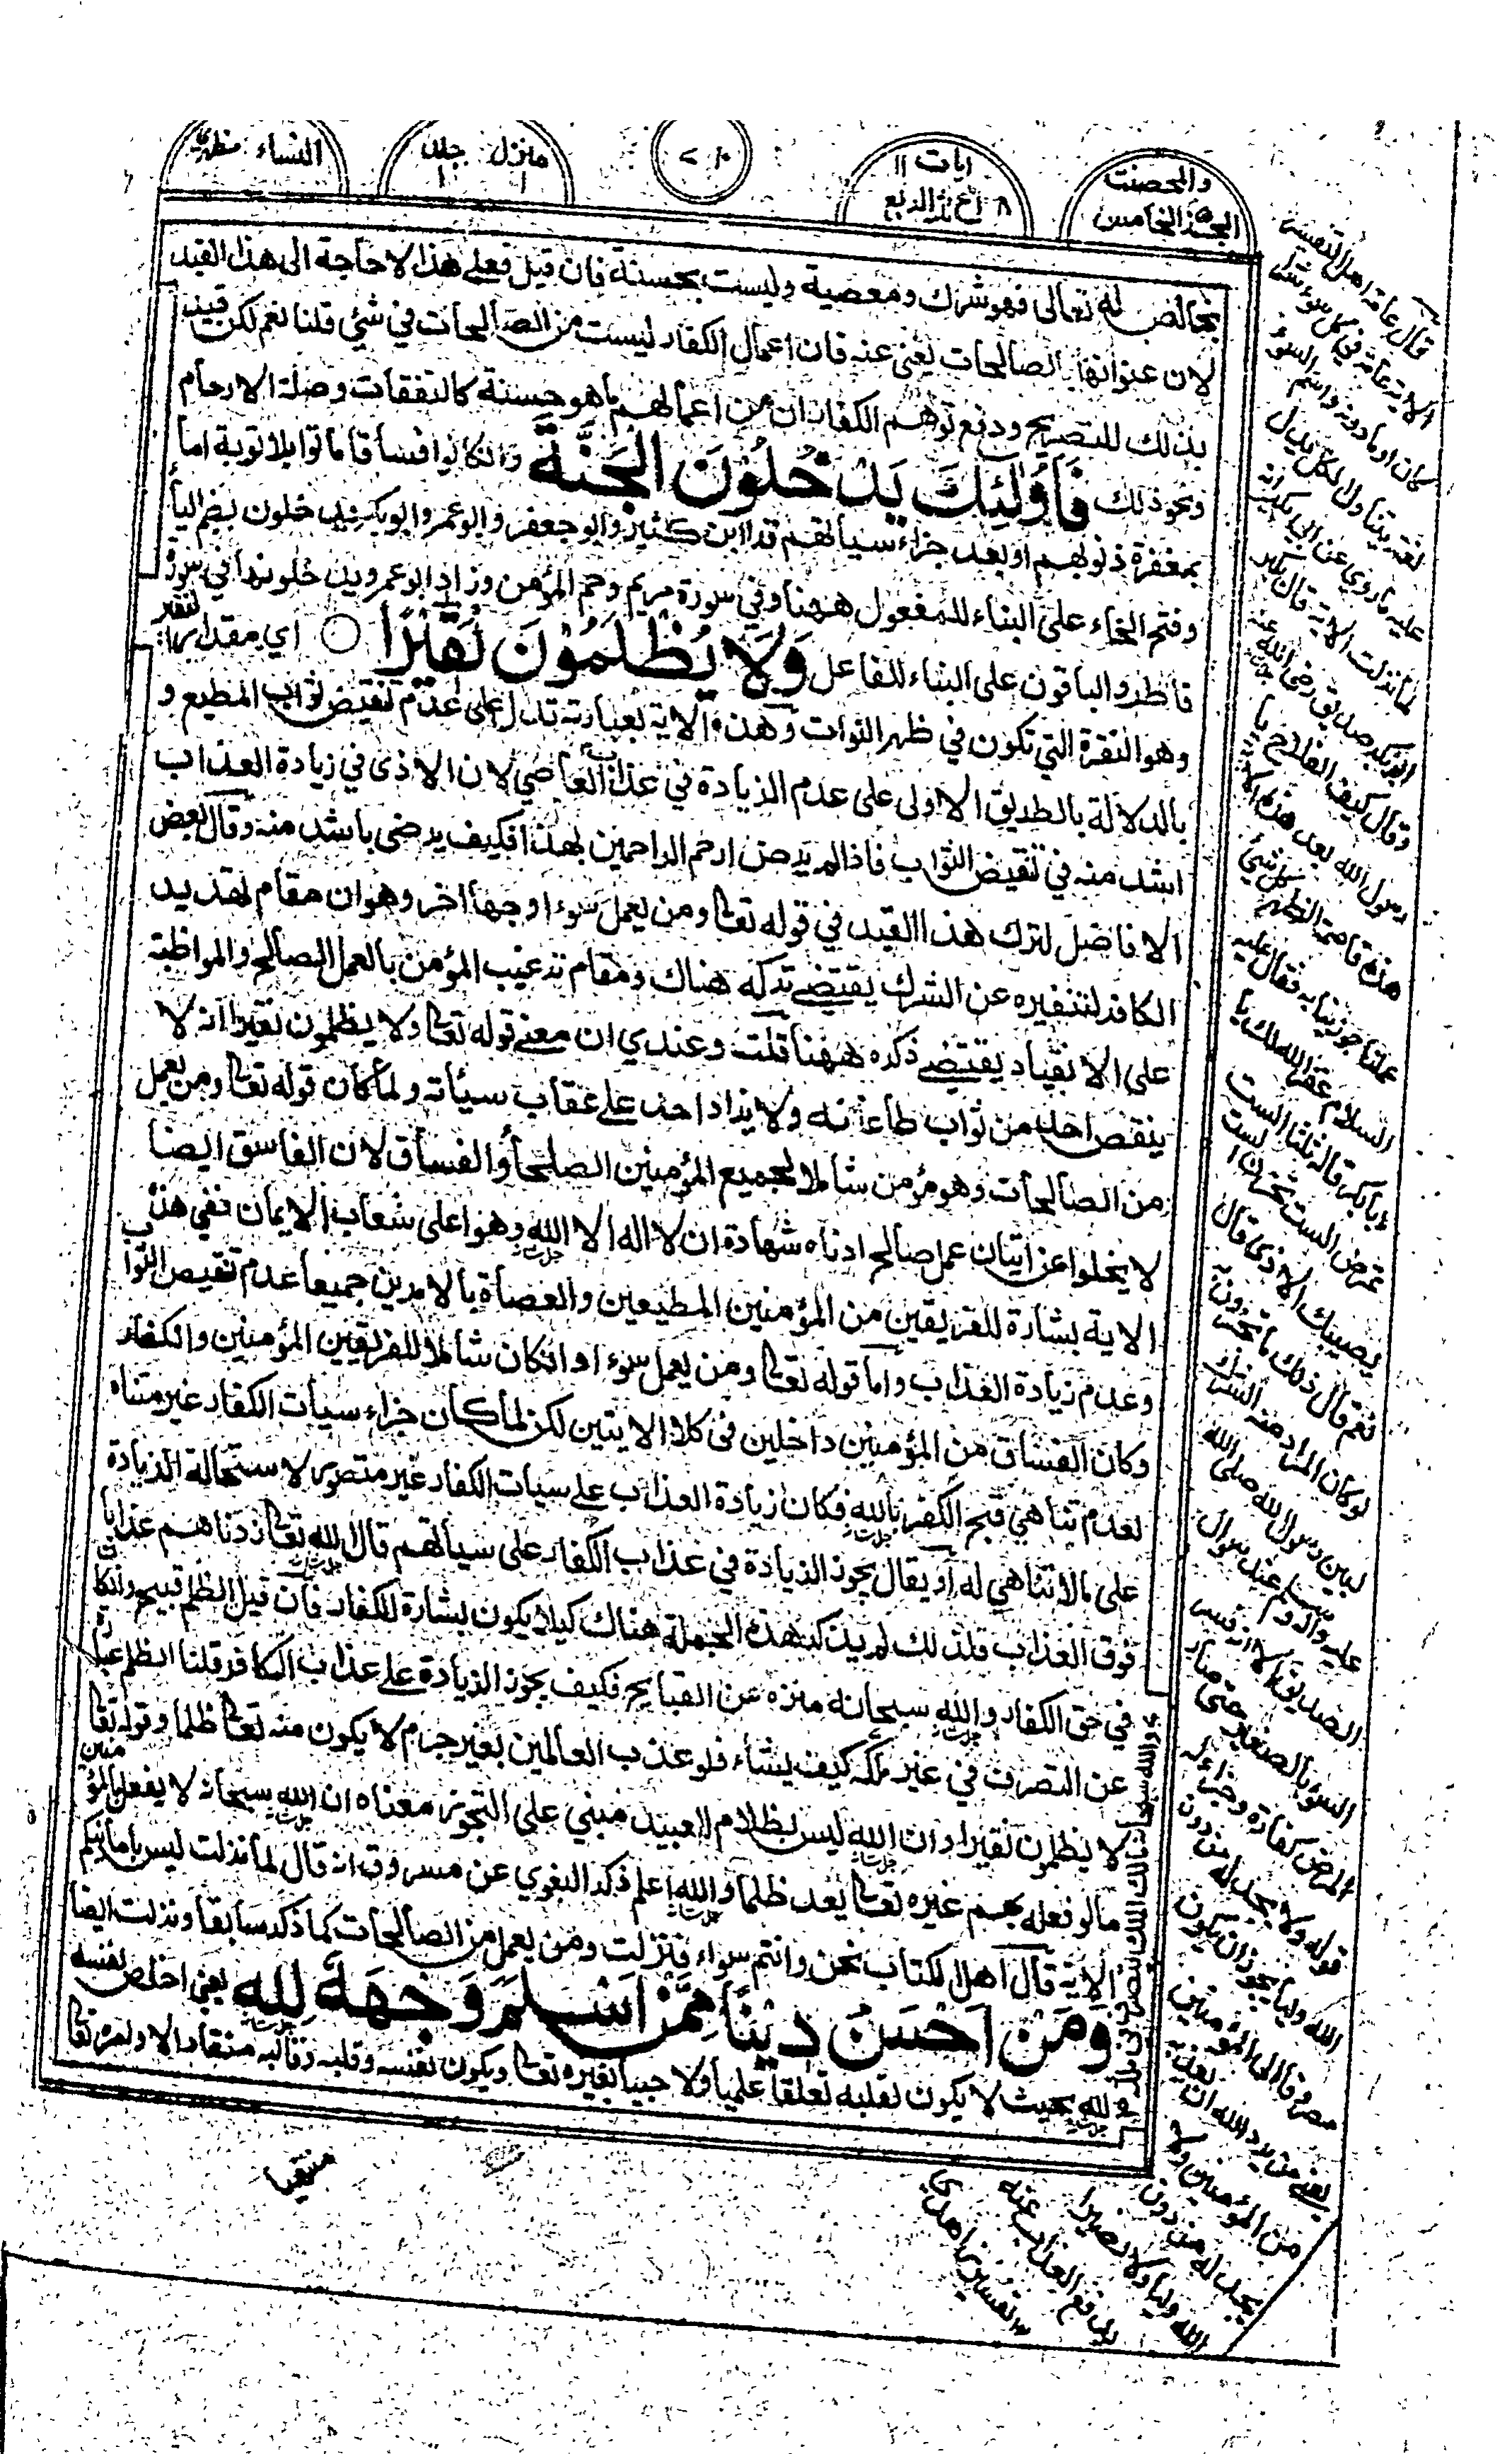 والمحصنت
الجزء الخامس
ايات ١١
النساء مظهري
منزل ١ جلد ١
بخالص له تعالى فهو شرك ومعصية وليست بحسنة فان قيل فعلى هذا لا حاجة الى هذا القيد
لان عنوانها الصالحات يغني عنه فان اعمال الكفار ليست من الصالحات في شئ قلنا نعم لكن قيد
بذلك للتصريح ودفع توهم الكفار ان من اعمالهم ما هو حسنة كالنفقات وصلة الارحام
ونحو ذلك فَأُولَٰئِكَ يَدْخُلُوْنَ الْجَنَّةَ وانكانوا فساقا ماتوا بلا توبة اما
بمغفرة ذنوبهم او بعد جزاء سياتهم قرا ابن كثير وابو جعفر وابو عمر وابو بكر يدخلون بضم اليا
وفتح الخاء على البناء للمفعول ههنا وفي سورة مريم وحم المؤمن وزاد ابو عمرو يدخلونها في سورة
فاطر والباقون على البناء للفاعل وَلَا يُظْلَمُوْنَ نَقِيْرًا ○ اي مقدار النقير
وهو النقرة التي تكون في ظهر النوات وهذه الاية بعبارته تدل على عدم تنقيض ثواب المطيع و
بالدلالة بالطريق الاولى على عدم الزيادة في عذاب العاصي لان الاذى في زيادة العذاب
اشد منه في تنقيض الثواب فاذا لم يرض ارحم الراحمين بهذا فكيف يرضى باشد منه وقال بعض
الافاضل لترك هذا القيد في قوله تعا ومن يعمل سوءا وجها اخر وهو ان مقام تهديد
الكافر لتنفيره عن الشرك يقتضے تركه هناك ومقام ترغيب المؤمن بالعمل الصالح والمواظبة
على الانقياد يقتضے ذكره ههنا قلت وعندي ان معنے قوله تعا ولا يظلمون نقيرا انه لا
ينقص احد من ثواب طاعاته ولا يزاد احد على عقاب سيأته ولما كان قوله تعا ومن يعمل
من الصالحات وهو مؤمن شاملا لجميع المؤمنين الصلحا والفساق لان الفاسق ايضا
لا يخلوا عن اتيان عمل صالح ادناه شهادة ان لا اله الا الله وهو اعلى شعاب الايمان ففي هذه
الاية بشارة للفريقين من المؤمنين المطيعين والعصاة بالامرين جميعا عدم تنقيص الثواب
وعدم زيادة العذاب واما قوله تعا ومن يعمل سوءا وانكان شاملا للفريقين المؤمنين والكفار
وكان الفساق من المؤمنين داخلين في كلا الايتين لكن لما كان جزاء سيات الكفار غير متناه
لعدم تناهي قبح الكفر بالله فكان زيادة العذاب على سيات الكفار غير متصور لاستحالة الزيادة
على ما لا تناهي له او يقال يجوز الزيادة في عذاب الكفار على سياتهم قال الله تعا زدناهم عذابا
فوق العذاب فلذلك لم يذكر هذه الجملة هناك كيلا يكون بشارة للكفار فان قيل الظلم قبيح وانكان
في حق الكفار والله سبحانه منزه عن القبايح فكيف يجوز الزيادة على عذاب الكافر قلنا الظلم عبارة
عن التصرف في غير ملكه كيف يشاء فلو عذب العالمين بغير جرم لا يكون منه تعا ظلما وقوله تعا
لا يظلمون نقيرا وان الله ليس بظلام للعبيد مبني على التجوز معناه ان الله سبحانه لا يفعل بالمؤمنين
ما لو فعله بهم غيره تعا يعد ظلما والله اعلم ذكر البغوي عن مسروق انه قال لما نزلت ليس بامانيكم
الاية قال اهل الكتاب نحن وانتم سواء فنزلت ومن يعمل من الصالحات كما ذكر سابقا ونزلت ايضا
وَمَنْ اَحْسَنُ دِيْنًا مِّمَّنْ اَسْلَمَ وَجْهَهٗ لِلّٰهِ يعني اخلص نفسه
لله بحيث لا يكون لقلبه تعلقا علميا ولا حبيا بغيره تعا ويكون نفسه وقلبه وقالبه منقادا لاوامره تعا
منتهيا
قال عامة اهل التفسير
الاية عامة في كل سوء
عليه ما روي عن ابي بكر انه
لما نزلت الاية قال
ابو بكر صديق رضي الله عنه
وقال كيف الفلاح يا
رسول الله بعد هذه
السلام غفر الله لك يا
ابا بكر قاله ثلثا الست
تمرض الست تحزن الست
يصيبك الاذى قال
نعم قال ذلك ما تجزون به
لو كان المراد منه الشرك
لبين رسول الله صلى الله
عليه واله وسلم عند سوال
المرض كفارة وجزاء له
قوله ولا يجد له من دون
الله وليا يجوز ان يكون
من المؤمنين ولا
يجد له من دون
الله وليا ولا نصيرا
يدفع العذاب عنه